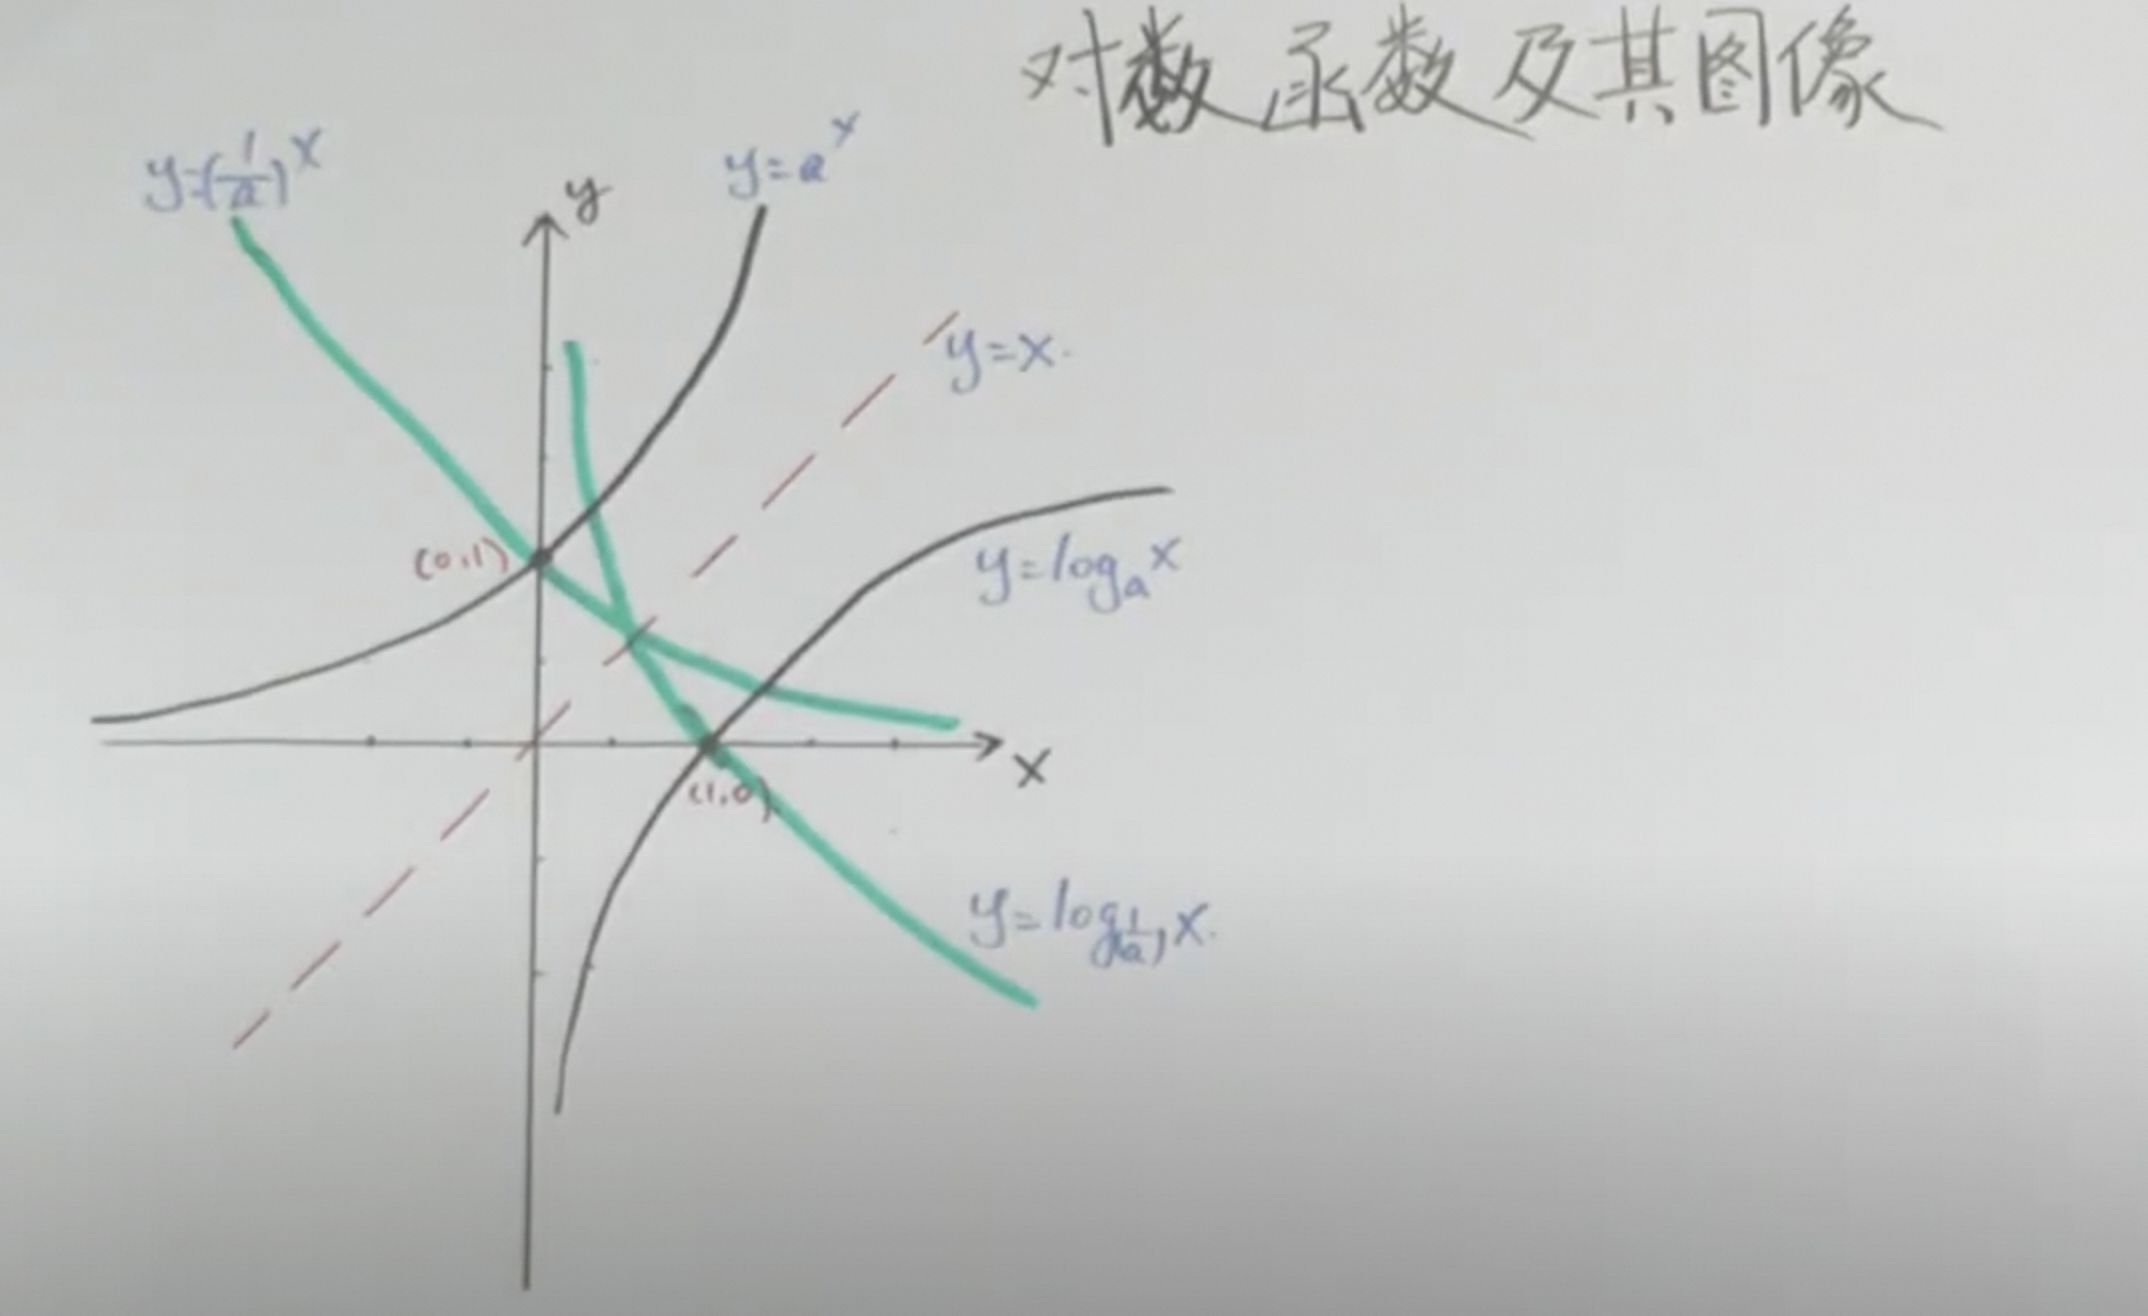 对数函数及其图像
y=(1/a)^x
y=a^x
y
y=x.
(0,1)
y=log_a x
x
(1,0)
y=log_(1/a) x.